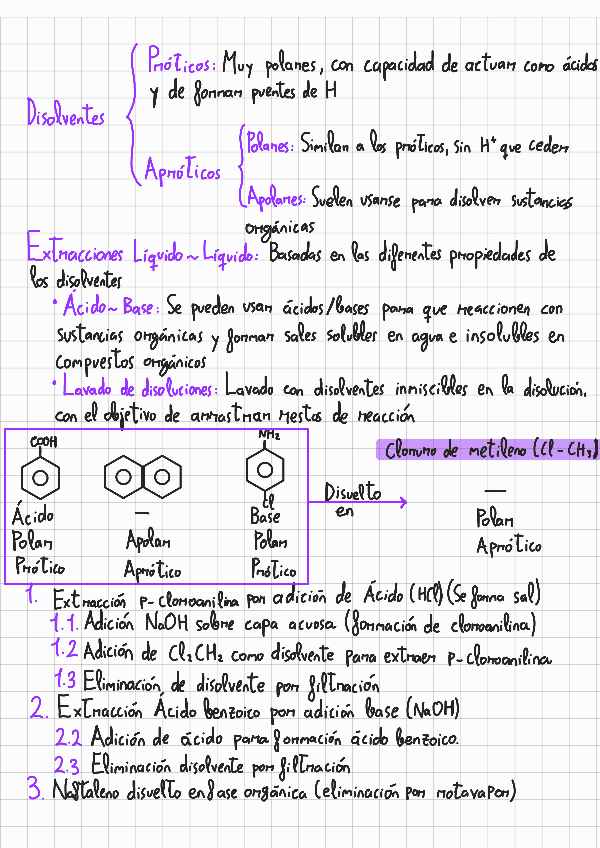 Próticos: Muy polares, con capacidad de actuar como ácidos
y de formar puentes de H
Disolventes
Polares: Similar a los próticos, sin H⁺ que ceder
Apróticos
Apolares: Suelen usarse para disolver sustancias
orgánicas
Extracciones Líquido~Líquido: Basadas en las diferentes propiedades de
los disolventes
• Ácido~Base: Se pueden usar ácidos/bases para que reaccionen con
sustancias orgánicas y formar sales solubles en agua e insolubles en
compuestos orgánicos
• Lavado de disoluciones: Lavado con disolventes inmiscibles en la disolución,
con el objetivo de arrastrar restos de reacción
COOH
NH₂
Cl
Cloruro de metileno (Cl-CH₃)
Ácido — Base
Polar Apolar Polar
Prótico Aprótico Prótico
Disuelto
en
—
Polar
Aprótico
1. Extracción p-cloroanilina por adición de Ácido (HCl) (Se forma sal)
1.1. Adición NaOH sobre capa acuosa (formación de cloroanilina)
1.2 Adición de Cl₂CH₂ como disolvente para extraer p-cloroanilina
1.3 Eliminación de disolvente por filtración
2. Extracción Ácido benzoico por adición base (NaOH)
2.2 Adición de ácido para formación ácido benzoico.
2.3 Eliminación disolvente por filtración
3. Naftaleno disuelto en fase orgánica (eliminación por rotavapor)